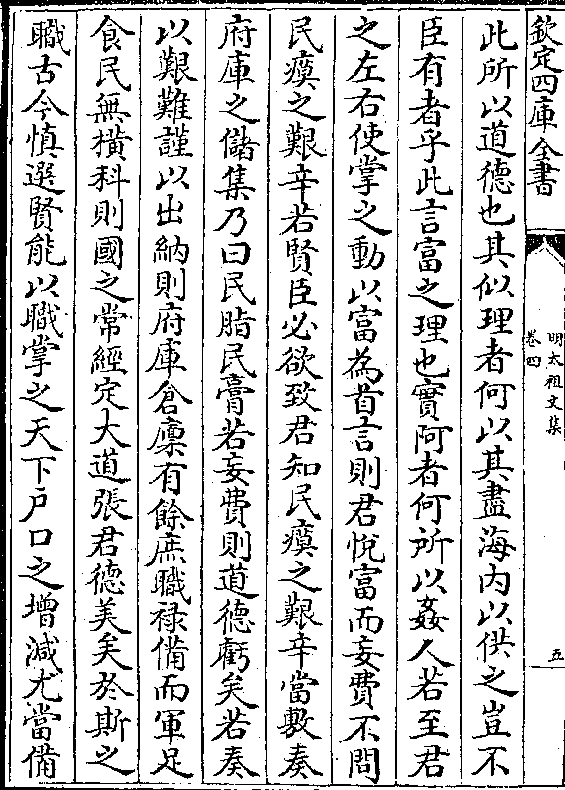 欽定四庫全書
明太祖文集
卷四
五
此所以道德也其似理者何以其盡海内以供之豈不
臣有者乎此言富之理也實阿者何所以姦人若至君
之左右使掌之動以富為首言則君悅富而妄費不問
民瘼之艱辛若賢臣必欲致君知民瘼之艱辛當敷奏
府庫之儲集乃曰民脂民膏若妄費則道德虧矣若奏
以艱難謹以出納則府庫倉廩有餘庶職禄備而軍足
食民無横科則國之常經定大道張君德美矣於斯之
職古今慎選賢能以職掌之天下戶口之增減尤當備